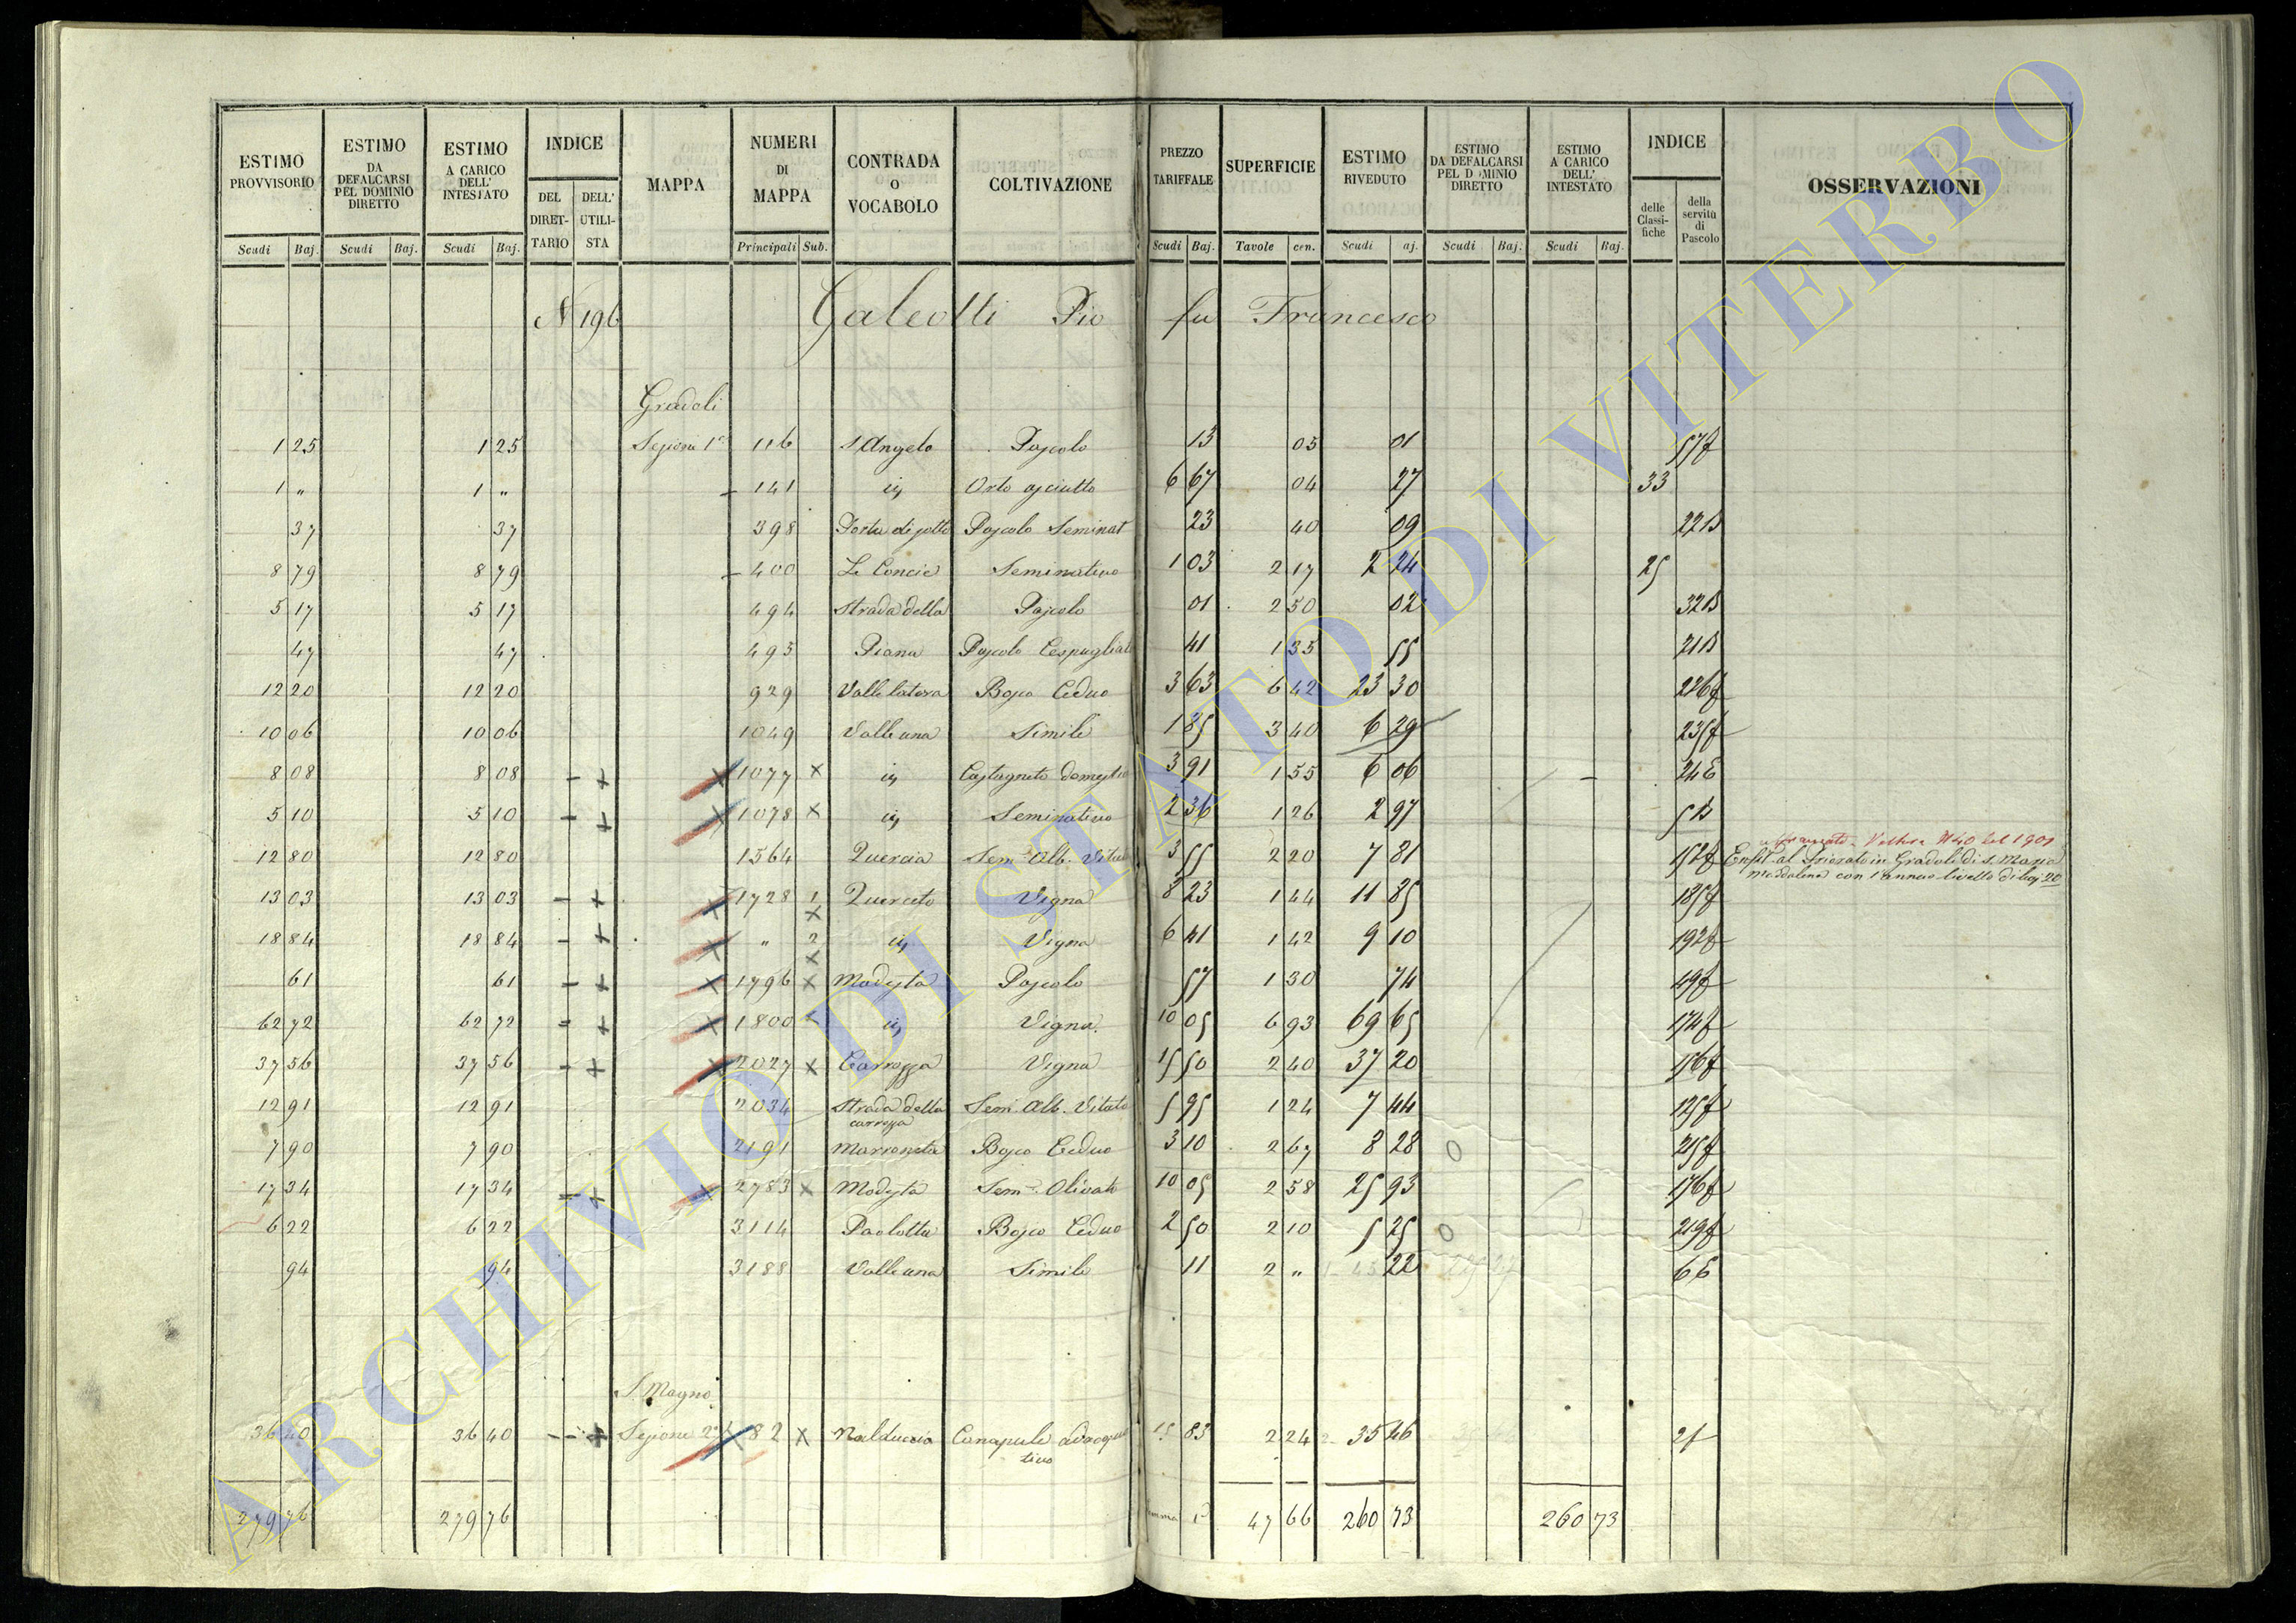 ESTIMO PROVVISORIO | ESTIMO DA DEFALCARSI PEL DOMINIO DIRETTO | ESTIMO A CARICO DELL' INTESTATO | INDICE | MAPPA | NUMERI DI MAPPA | CONTRADA O VOCABOLO | COLTIVAZIONE | PREZZO TARIFFALE | SUPERFICIE | ESTIMO RIVEDUTO | ESTIMO DA DEFALCARSI PEL DOMINIO DIRETTO | ESTIMO A CARICO DELL' INTESTATO | INDICE | OSSERVAZIONI
DEL DIRETTARIO | DELL' UTILISTA | delle Classifiche | della servitù di Pascolo
Scudi | Baj. | Scudi | Baj. | Scudi | Baj. | Principali | Sub. | Scudi | Baj. | Tavole | cen. | Scudi | aj. | Scudi | Baj. | Scudi | Baj.
N 196 Galeotti Pio fu Francesco
Gradoli
1 25 | 1 25 | Sezione 1a | 116 | S Angelo | Pascolo | 13 | 05 | 01 | 57f
1 " | 1 " | 141 | in | Orto asciutto | 6 67 | 04 | 27 | 33
37 | 37 | 398 | Porta di sotto | Pascolo Seminat | 23 | 40 | 09 | 22B
8 79 | 8 79 | 400 | Le Concie | Seminativo | 1 03 | 2 17 | 2 24 | 25
5 17 | 5 17 | 494 | Strada della | Pascolo | 01 | 2 50 | 02 | 32B
47 | 47 | 495 | Piana | Pascolo Cespugliato | 41 | 1 35 | 55 | 21B
12 20 | 12 20 | 929 | Valle latora | Bosco Ceduo | 3 63 | 6 42 | 23 30 | 226f
10 06 | 10 06 | 1049 | Valle una | Simile | 1 85 | 3 40 | 6 29 | 235f
8 08 | 8 08 | 1077 | x | in | Castagneto domestico | 3 91 | 1 55 | 6 06 | 24E
5 10 | 5 10 | 1078 | x | in | Seminativo | 2 36 | 1 26 | 2 97 | 5B
affrancato - Voltura N 40 del 1901
12 80 | 12 80 | 1564 | Quercia | Sem. Alb. Vitato | 3 55 | 2 20 | 7 81 | 152f | Enfit. al Priorato in Gradoli di S. Maria
Maddalena con l'annuo livello di baj 20
13 03 | 13 03 | 1728 | 1 x | Querceto | Vigna | 8 23 | 1 44 | 11 85 | 185f
18 84 | 18 84 | " | 2 x | in | Vigna | 6 41 | 1 42 | 9 10 | 192f
61 | 61 | 1796 | x | Modesta | Pascolo | 57 | 1 30 | 74 | 49f
62 72 | 62 72 | 1800 | in | Vigna | 10 05 | 6 93 | 69 65 | 174f
37 56 | 37 56 | 2027 | x | Carrozza | Vigna | 15 50 | 2 40 | 37 20 | 156f
12 91 | 12 91 | 2034 | Strada della carrozza | Sem. Alb. Vitato | 5 95 | 1 24 | 7 44 | 125f
7 90 | 7 90 | 2191 | Marroneta | Bosco Ceduo | 3 10 | 2 67 | 8 28 | 215f
17 34 | 17 34 | 2783 | x | Modesta | Sem. Olivato | 10 05 | 2 58 | 25 93 | 176f
6 22 | 6 22 | 3114 | Paolotta | Bosco Ceduo | 2 50 | 2 10 | 5 25 | 219f
94 | 94 | 3188 | Valle una | Simile | 11 | 2 " | 22 | 6E
S. Magno
36 40 | 36 40 | Sezione 2a | 82 | x | Canapule adacquativo | 15 83 | 2 24 | 35 46 | 2f
279 76 | 279 76 | 47 66 | 260 73 | 260 73
ARCHIVIO DI STATO DI VITERBO